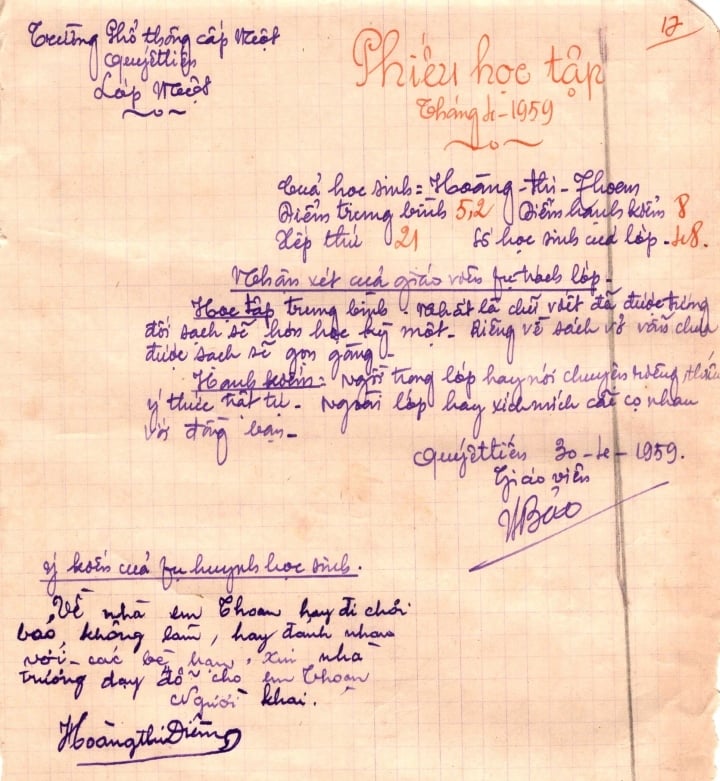 Trường Phổ thông cấp Một
Quyết tiến
Lớp Một
17
Phiếu học tập
Tháng 4-1959
Của học sinh = Hoàng-thị-Thoan
Điểm trung bình 5,2 Điểm hạnh kiểm 8
Xếp thứ 21 Số học sinh của lớp - 48.
Nhận xét của giáo viên phụ trách lớp -
Học tập trung bình - Nhất là chữ viết đã được tương
đối sạch sẽ hơn học kỳ một - Riêng về sách vở vẫn chưa
được sạch sẽ gọn gàng -
Hạnh kiểm = Ngồi trong lớp hay nói chuyện riêng thiếu
ý thức trật tự - Ngoài lớp hay xích mích cãi cọ nhau
với bạn -
Quyết tiến 30-4-1959.
Giáo viên
Bảo
ý kiến của phụ huynh học sinh.
Về nhà em Thoan hay đi chơi
bảo không làm, hay đánh nhau
với các bạn, xin nhà
trường dạy dỗ cho em Thoan
Người khai.
Hoàng thị Diễm